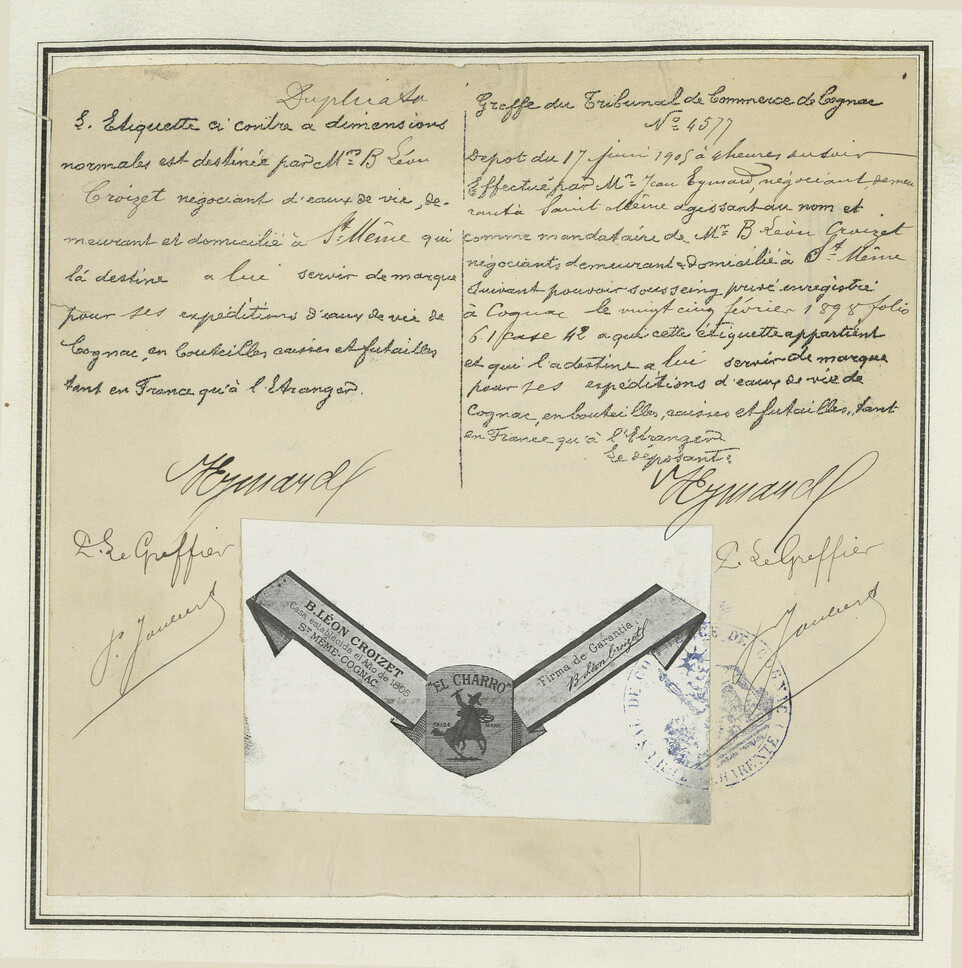 Duplicata
L. Etiquette ci contre a dimensions
normales est destinée par Mrs B Léon
Croizet négociant d'eaux de vie, de-
meurant et domicilié à St Même qui
la destine a lui servir de marque
pour ses expéditions d'eaux de vie de
Cognac, en bouteilles caisses et futailles
tant en France qu'à l'Etranger.
Eymard
P. Le Greffier
Greffe du Tribunal de Commerce de Cognac
No 4577
Depot du 17 juin 1905 à 4 heures du soir
Effectué par Mr Jean Eymard, négociant demeu
rant à Saint Même agissant au nom et
comme mandataire de Mr B Léon Croizet
négociants demeurant & domicilié à St Même
suivant pouvoir sousseing privé enregistré
à Cognac le vingt cinq février 1898 folio
61 case 42 a qui cette étiquette appartient
et qui l'a destine a lui servir de marque
pour ses expéditions d'eaux de vie de
Cognac, en bouteilles, caisses et futailles, tant
en France qu'à l'Etranger
Le déposant:
Eymard
P. Le Greffier
B. LÉON CROIZET
Casa establecida el Año de 1805
ST MÊME-COGNAC
"EL CHARRO"
TRADE MARK
Firma de Garantia:
B Léon Croizet
CHARENTE